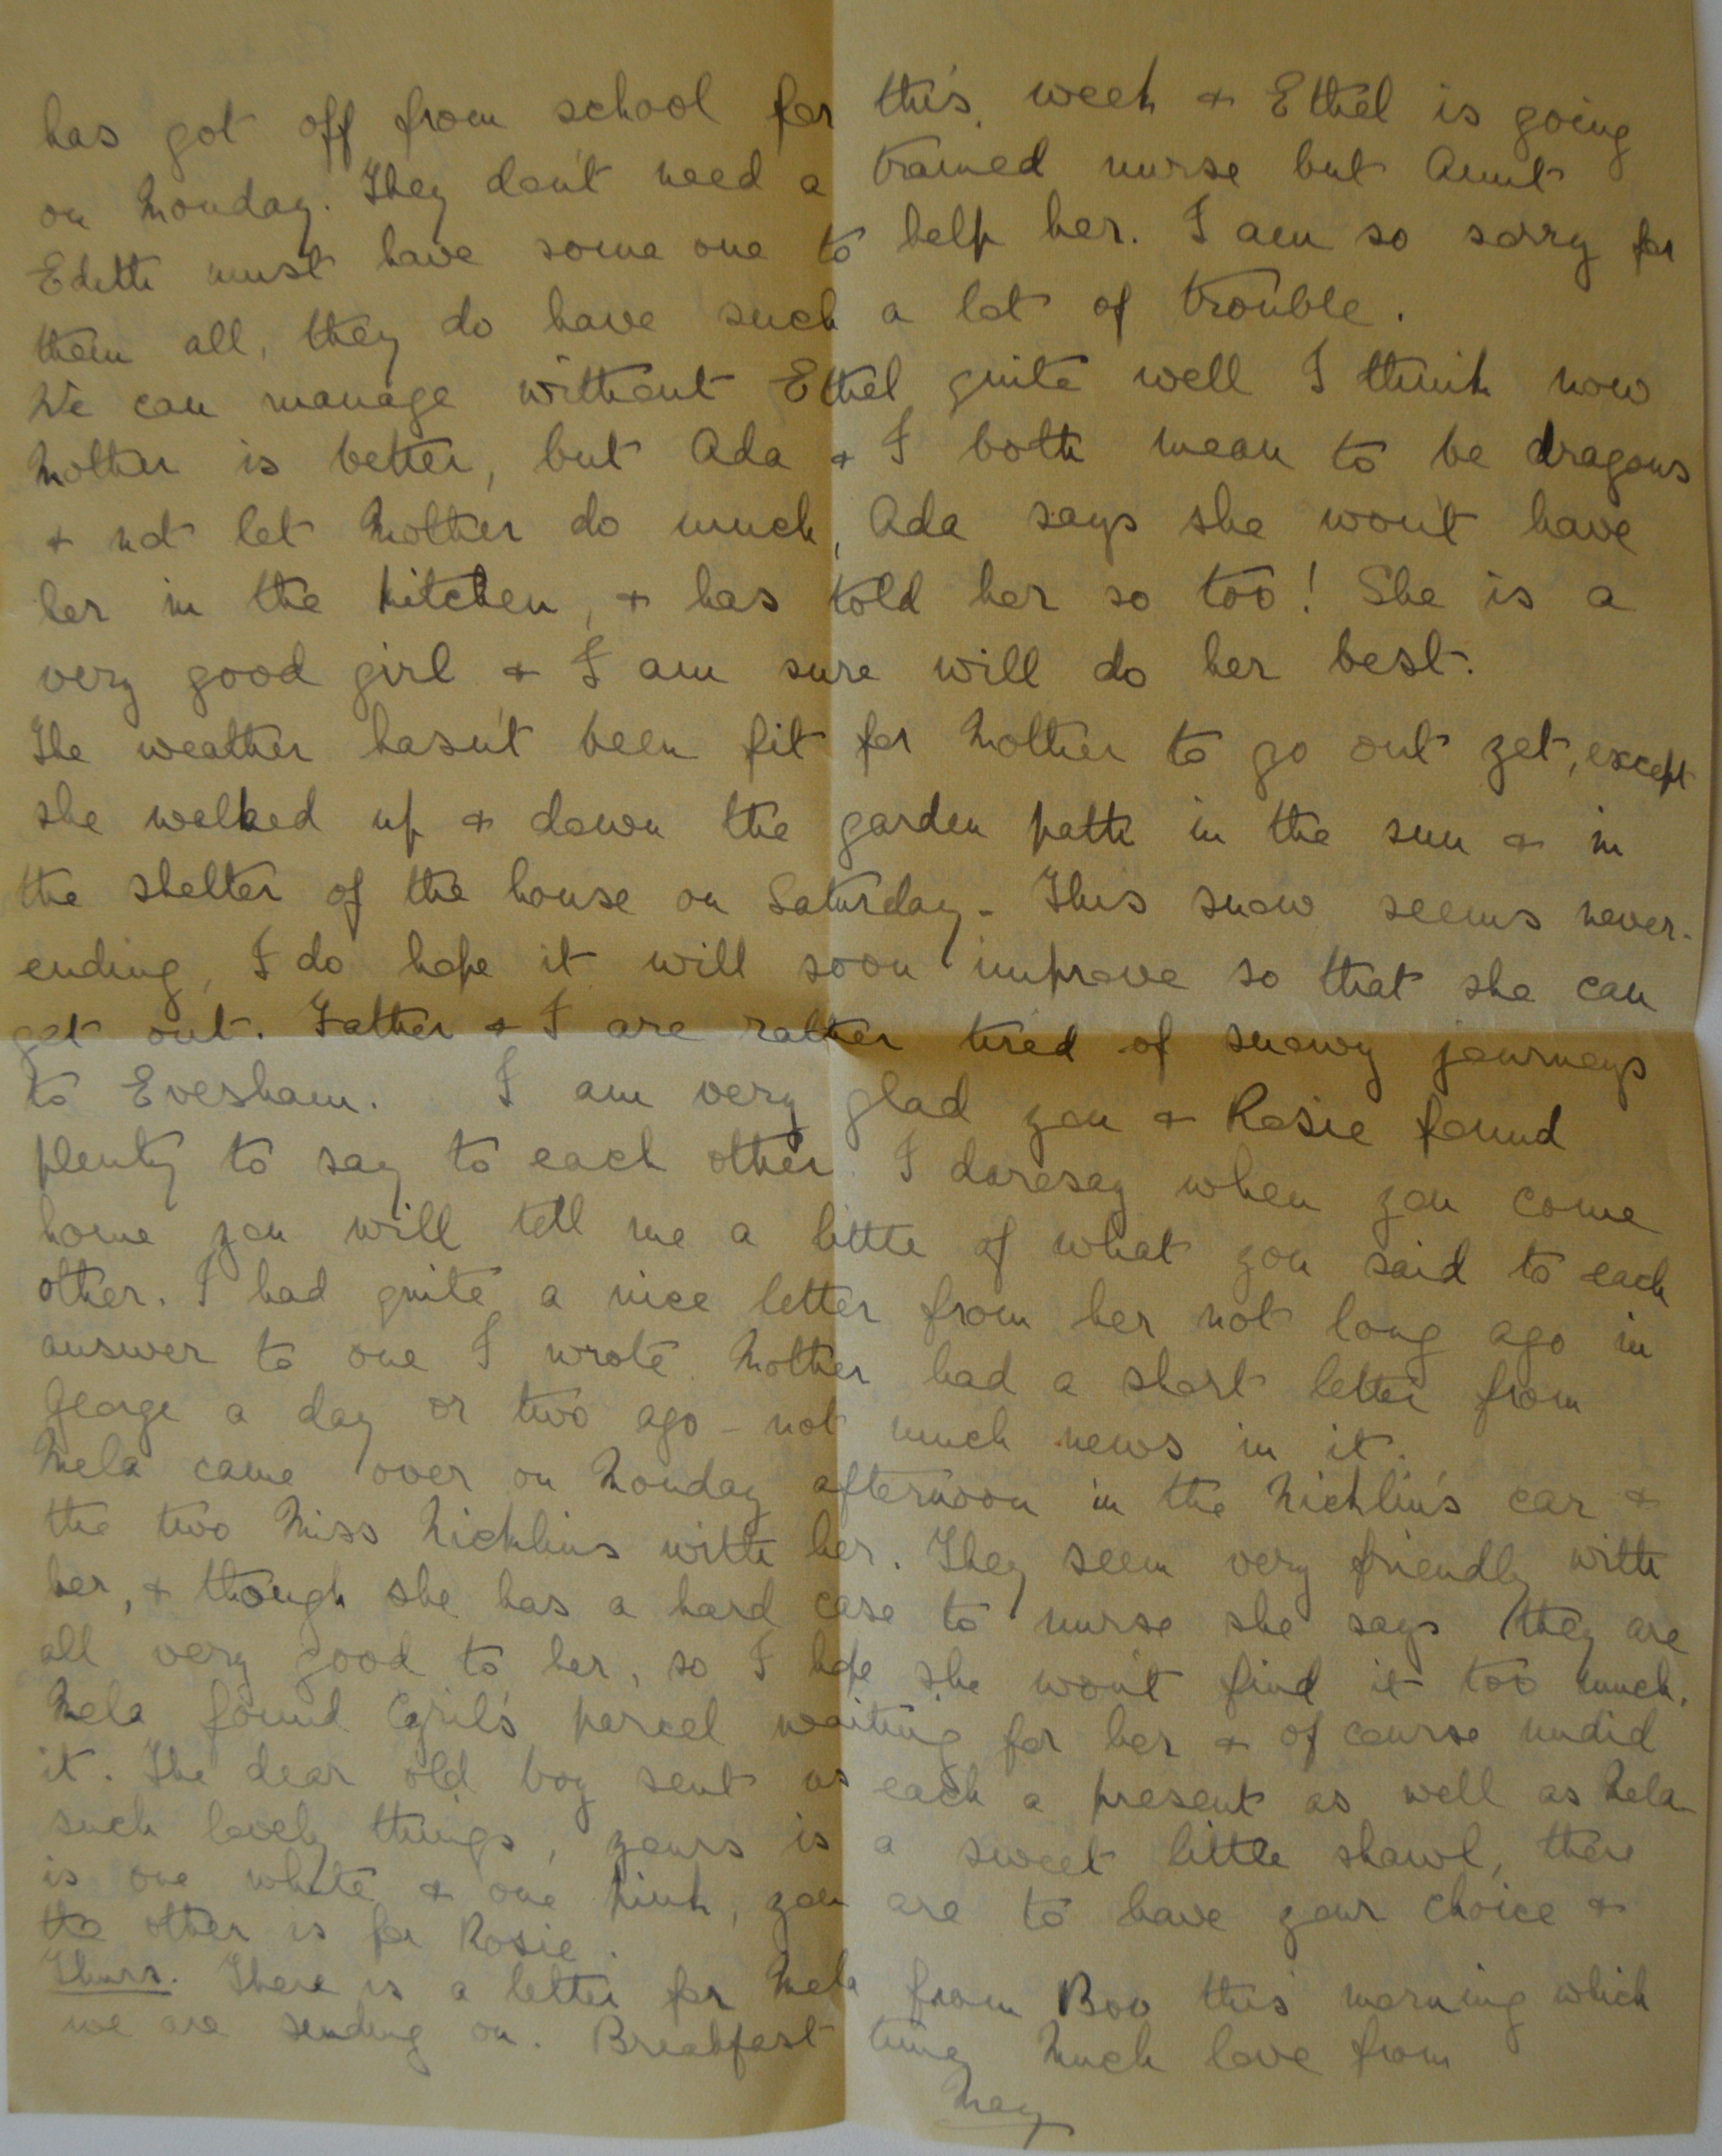 has got off from school for this week & Ethel is going
on Monday. They don't need a trained nurse but Aunt
Edith must have some one to help her. I am so sorry for
them all, they do have such a lot of trouble.
We can manage without Ethel quite well I think now
Mother is better, but Ada & I both mean to be dragons
& not let Mother do much, Ada says she won't have
her in the kitchen, & has told her so too! She is a
very good girl & I am sure will do her best.
The weather hasn't been fit for Mother to go out yet, except
she walked up & down the garden path in the sun & in
the shelter of the house on Saturday - This snow seems never-
ending, I do hope it will soon improve so that she can
get out. Father & I are rather tired of snowy journeys
to Evesham. I am very glad you & Rosie found
plenty to say to each other. I daresay when you come
home you will tell me a little of what you said to each
other. I had quite a nice letter from her not long ago in
answer to one I wrote. Mother had a short letter from
George a day or two ago - not much news in it.
Mela came over on Monday afternoon in the Nicklin's car &
the two Miss Nicklins with her. They seem very friendly with
her, & though she has a hard case to nurse she says they are
all very good to her, so I hope she won't find it too much.
Mela found Cyril's parcel waiting for her & of course undid
it. The dear old boy sent us each a present as well as Mela
such lovely things, yours is a sweet little shawl, there
is one white & one pink, you are to have your choice &
the other is for Rosie.
Thurs. There is a letter for Mela from Boo this morning which
we are sending on. Breakfast time Much love from
May